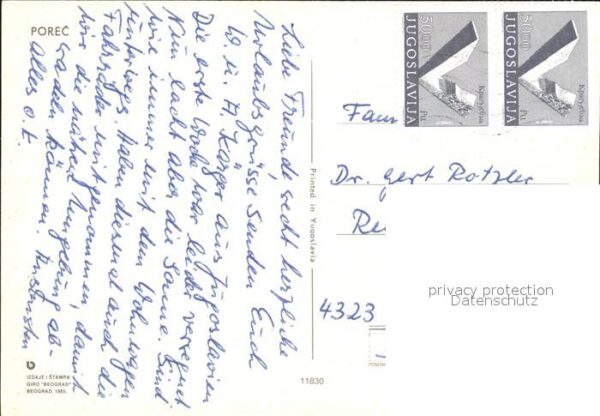 POREČ
Liebe Freunde, recht herzliche
Urlaubsgrüsse senden Euch
W. u. H. Karger aus Jugoslavien
Die erste Woche war leider verregnet
Nun lacht aber die Sonne. Sind
wie immer mit dem Wohnwagen
unterwegs. Haben diesmal auch die
Fahrräder mitgenommen, damit
wir die nähere Umgebung ab-
radeln können. Ansonsten
alles o.k.
IZDAJE I ŠTAMPA
GIRO "BEOGRAD"
BEOGRAD, 1985.
Printed in Yugoslavia
11830
50
JUGOSLAVIJA
50
JUGOSLAVIJA
Fam
Dr. Gert Rotzler
Re
4323
privacy protection
Datenschutz